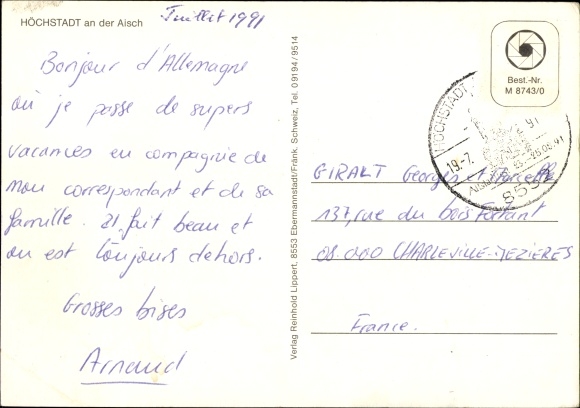 HÖCHSTADT an der Aisch
Juillet 1991
Bonjour d'Allemagne
où je passe de supers
vacances en compagnie de
mon correspondant et de sa
famille. Il fait beau et
on est toujours dehors.
Grosses bises
Arnaud
Verlag Reinhold Lippert, 8553 Ebermannstadt/Fränk. Schweiz, Tel. 09194/9514
Best.-Nr.
M 8743/0
HÖCHSTADT
19.-7.
GIRALT Georges et
137, rue du bois Fortant
08.000 CHARLEVILLE-MEZIERES
France.